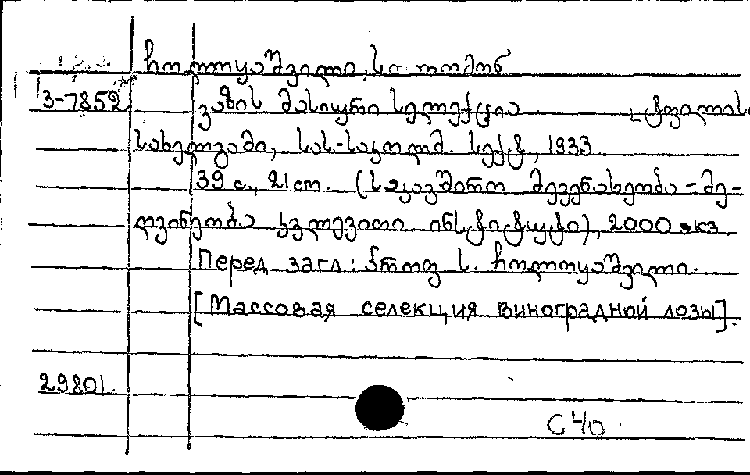 ჩოლოყაშვილი, სოლომონ
3-7852 ვაზის მასიური სელექცია
ტფილისი
სახელგამი, სას-სამეურნ. სექტ., 1933
39 с., 21 cm. (საკავშირო მევენახეობა-მე-
ღვინეობა კვლევითი ინსტიტუტი), 2000 экз
Перед загл: პროფ ს. ჩოლოყაშვილი.
[Массовая селекция виноградной лозы].
29801.
С 40